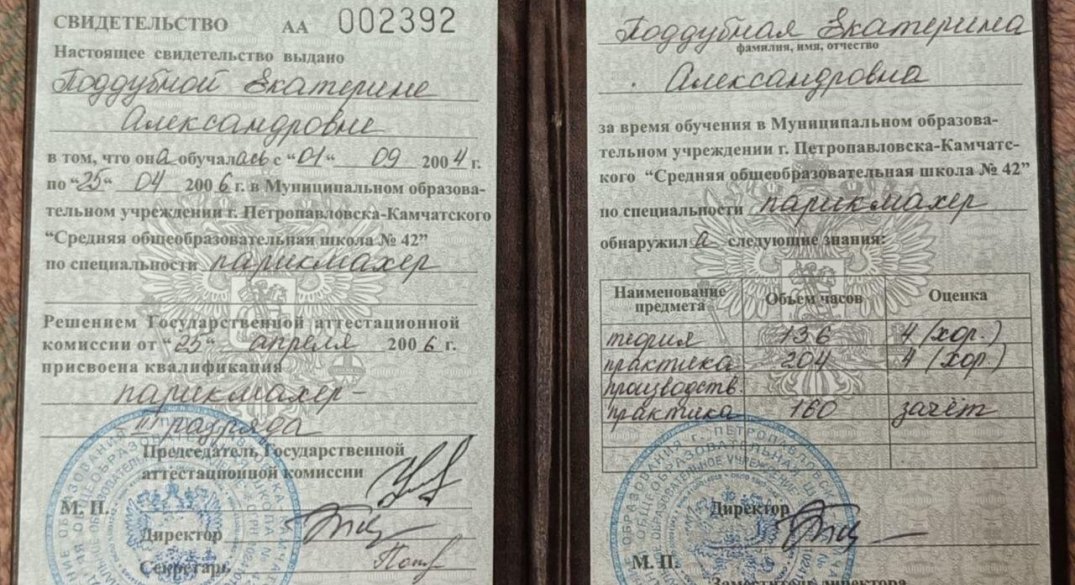 СВИДЕТЕЛЬСТВО АА 002392
Настоящее свидетельство выдано
Поддубной Екатерине
Александровне
в том, что она обучалась с "01" 09 2004 г.
по "25" 04 2006 г. в Муниципальном образова-
тельном учреждении г. Петропавловска-Камчатского
"Средняя общеобразовательная школа № 42"
по специальности парикмахер
Решением Государственной аттестационной
комиссии от "25" апреля 2006 г.
присвоена квалификация
парикмахер-
III разряда
Председатель Государственной
аттестационной комиссии
М. П.
Директор
Секретарь
Поддубная Екатерина
фамилия, имя, отчество
Александровна
за время обучения в Муниципальном образова-
тельном учреждении г. Петропавловска-Камчатс-
кого "Средняя общеобразовательная школа № 42"
по специальности парикмахер
обнаружила следующие знания:
Наименование предмета Объем часов Оценка
теория 136 4 (хор.)
практика 204 4 (хор.)
производств.
практика 160 зачёт
Директор
М. П.
Заместитель директора